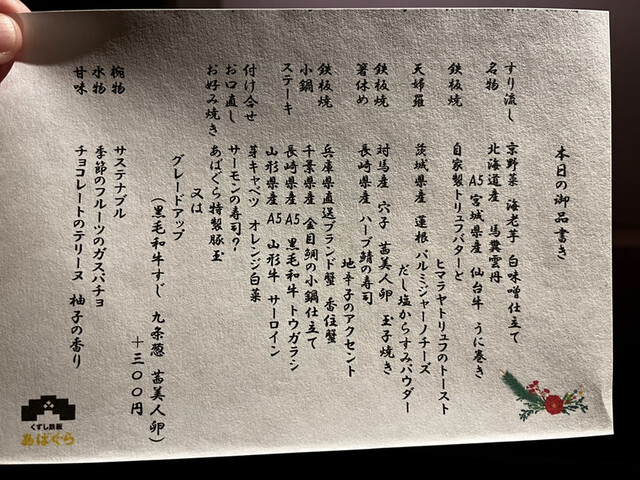 本日の御品書き
すり流し 京野菜 海老芋 白味噌仕立て
名物 北海道産 馬糞雲丹
A5 宮城県産 仙台牛 うに巻き
鉄板焼 自家製トリュフバターと
ヒマラヤトリュフのトースト
天婦羅 茨城県産 蓮根 パルミジャーノチーズ
だし塩からすみパウダー
鉄板焼 対馬産 穴子 茜美人卵 玉子焼き
箸休め 長崎県産 ハーブ鯖の寿司
地辛子のアクセント
鉄板焼 兵庫県直送ブランド蟹 香住蟹
小鍋 千葉県産 金目鯛の小鍋仕立て
ステーキ 長崎県産 A5 黒毛和牛トウガラシ
山形県産 A5 山形牛 サーロイン
付け合せ 芽キャベツ オレンジ白菜
お口直し サーモンの寿司?
お好み焼き あばぐら特製豚玉
又は
グレードアップ
(黒毛和牛すじ 九条葱 茜美人卵)
+三〇〇円
椀物 サステナブル
水物 季節のフルーツのガスパチョ
甘味 チョコレートのテリーヌ 柚子の香り
くずし鉄板
あばぐら